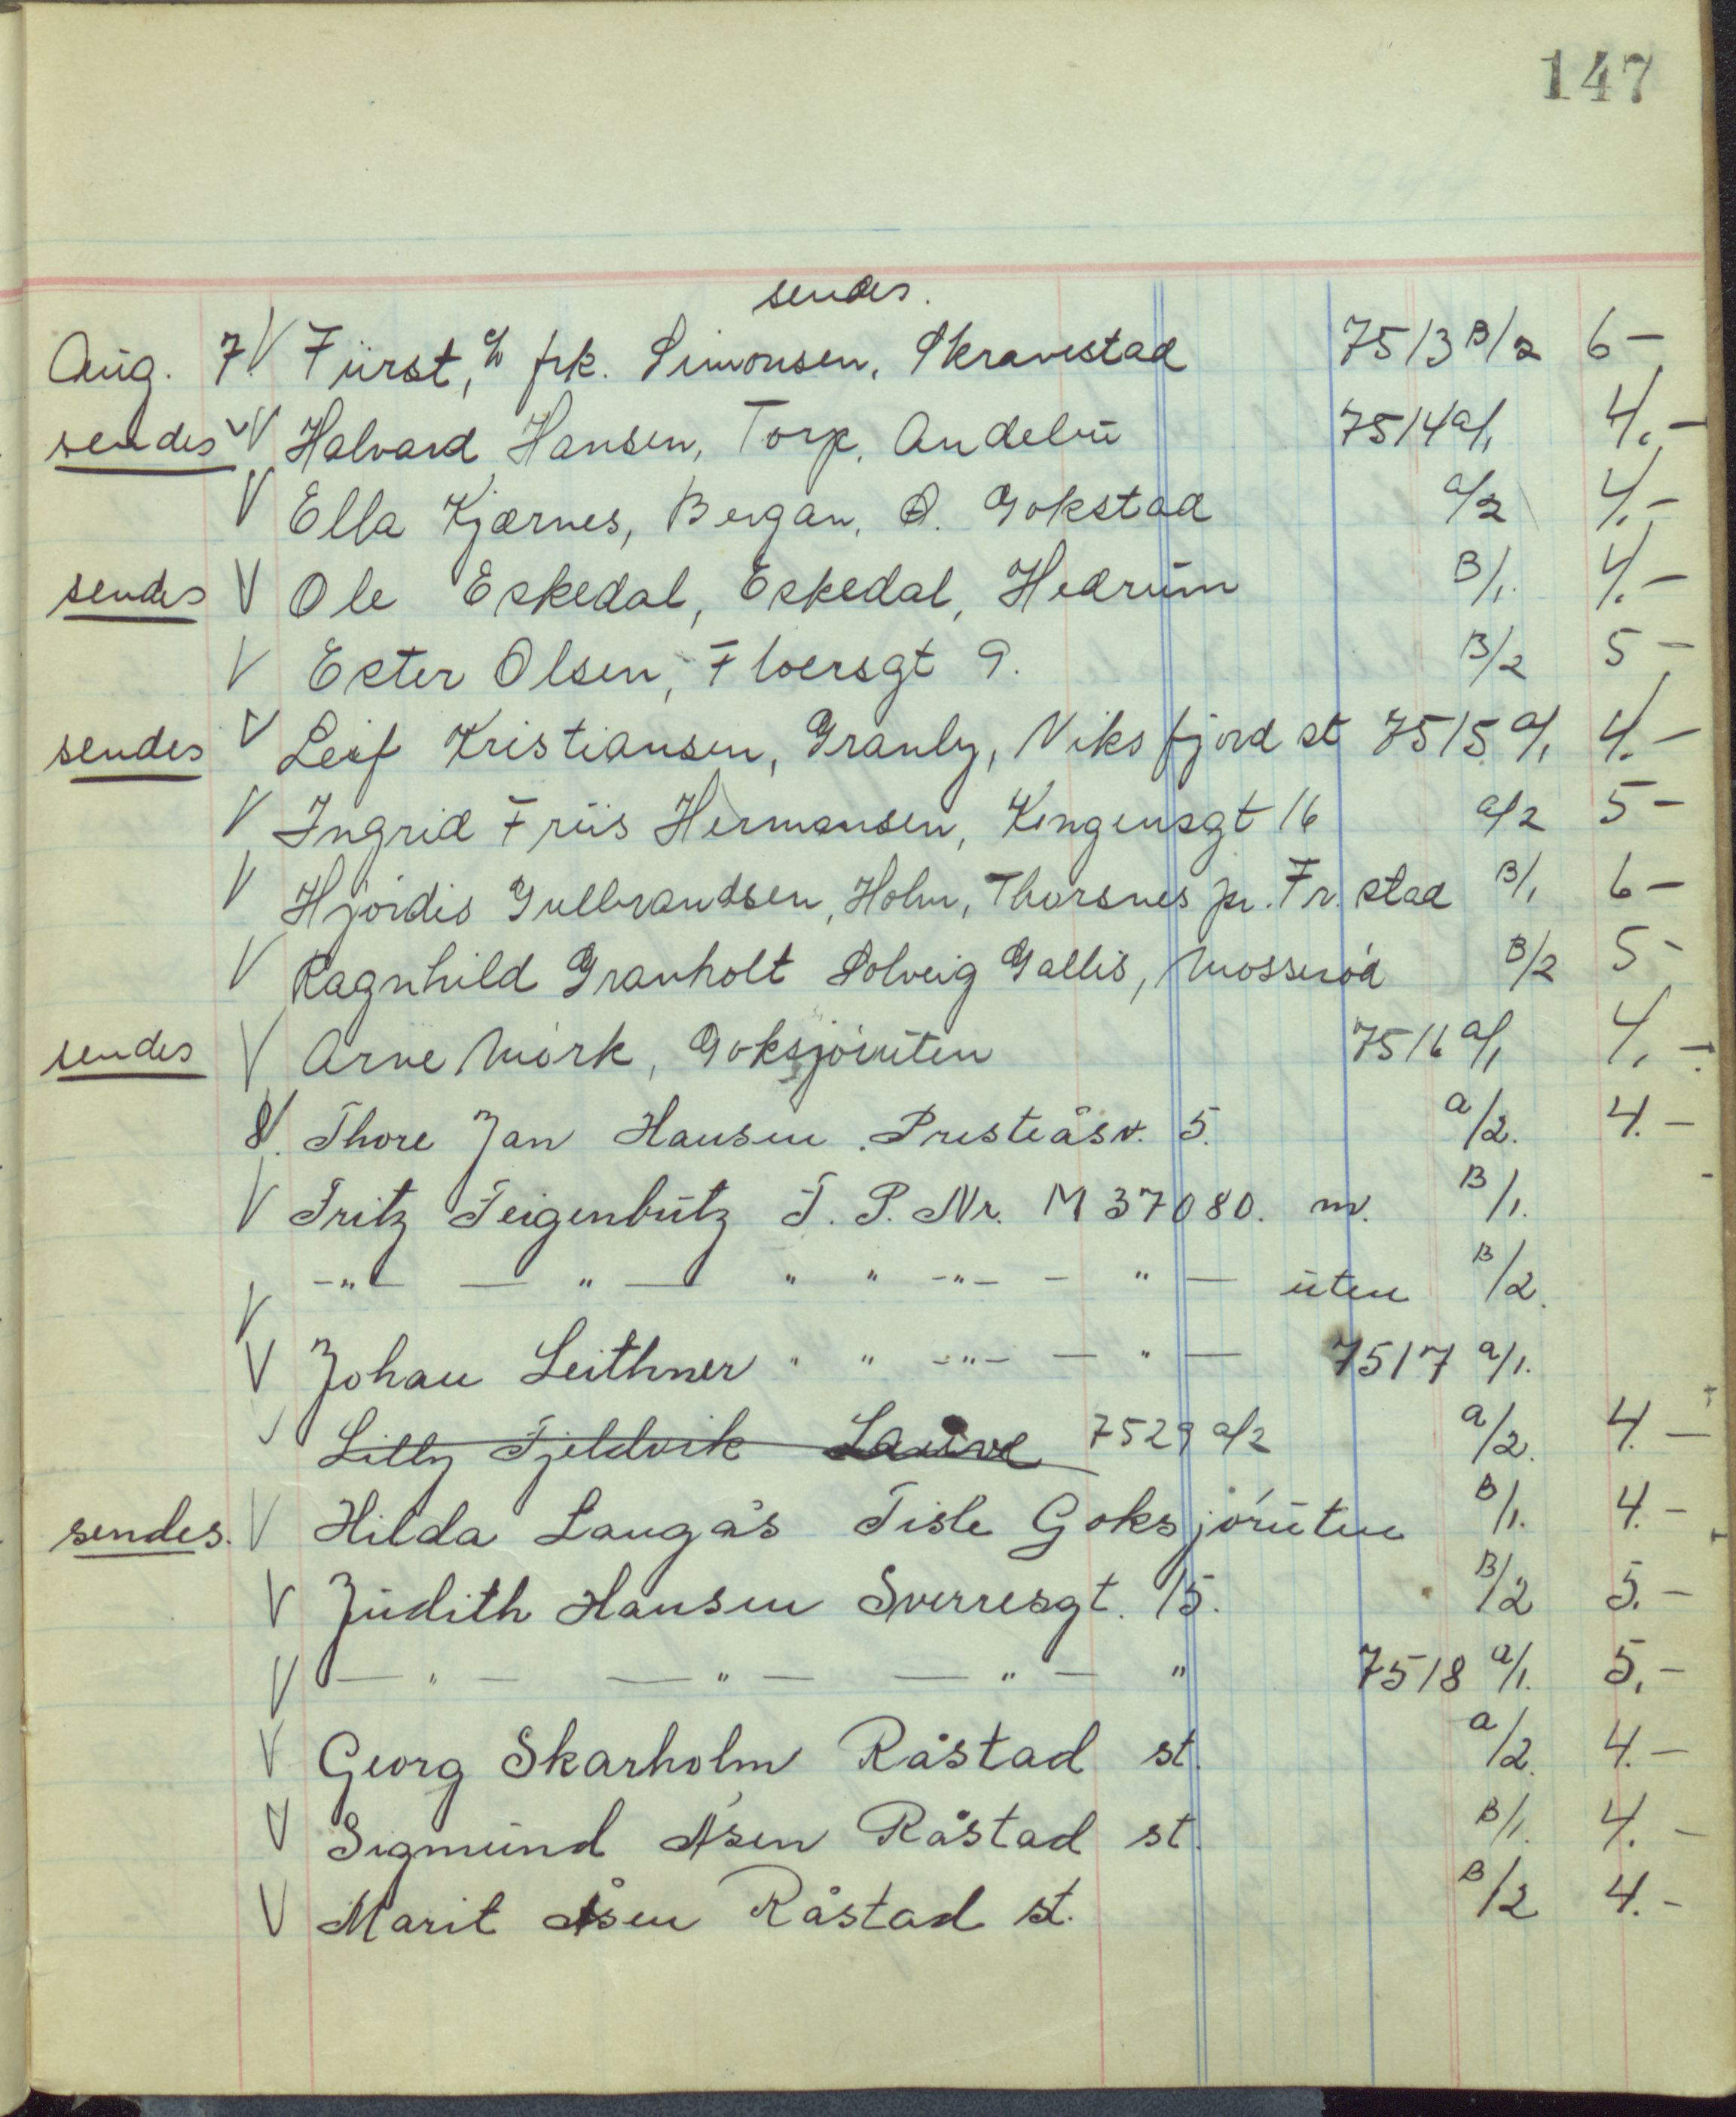 147
sendes.
Aug. 7. V Fürst, c/o frk. Simonsen, Skravestad 7513 B/2 6 -
sendes V Halvard Hansen, Torp, Andebu 7514 a/1 4. -
V Ella Kjærnes, Bergan, Ø. Gokstad a/2 4. -
sendes V Ole Eskedal, Eskedal, Hedrum B/1. 4. -
V Ester Olsen, Floersgt 9. B/2 5 -
sendes V Leif Kristiansen, Granly, Viksfjord st 7515 a/1 4. -
V Ingrid Friis Hermansen, Kongensgt 16 a/2 5 -
V Hjördis Gulbrandsen, Holm, Thorsnes pr. Fr. stad B/1 6 -
V Ragnhild Granholt Solveig Gallis, Mosseród B/2 5 -
sendes V Arne Mórk, Goksjóruten 7516 a/1 4. -
8. V Thore Jan Hansen. Presteåsv. 5. a/2. 4. -
V Fritz Feigenbutz F. P. Nr. M 37080. m. B/1.
V -"- - " - " " -"- - " - uten B/2.
V Johan Leithner " " -"- - " - 7517 a/1.
V Lilly Fjeldvik Lauve 7529 a/2 a/2. 4. -
sendes. V Hilda Langås Tisle Goksjóruten B/1. 4. -
V Judith Hansen Sverresgt. 15. B/2 5. -
V - " - - " - - " - " 7518 a/1. 5. -
V Georg Skarholm Råstad st. a/2. 4. -
V Sigmund Åsen Råstad st. B/1. 4. -
V Marit Åsen Råstad st. B/2 4. -